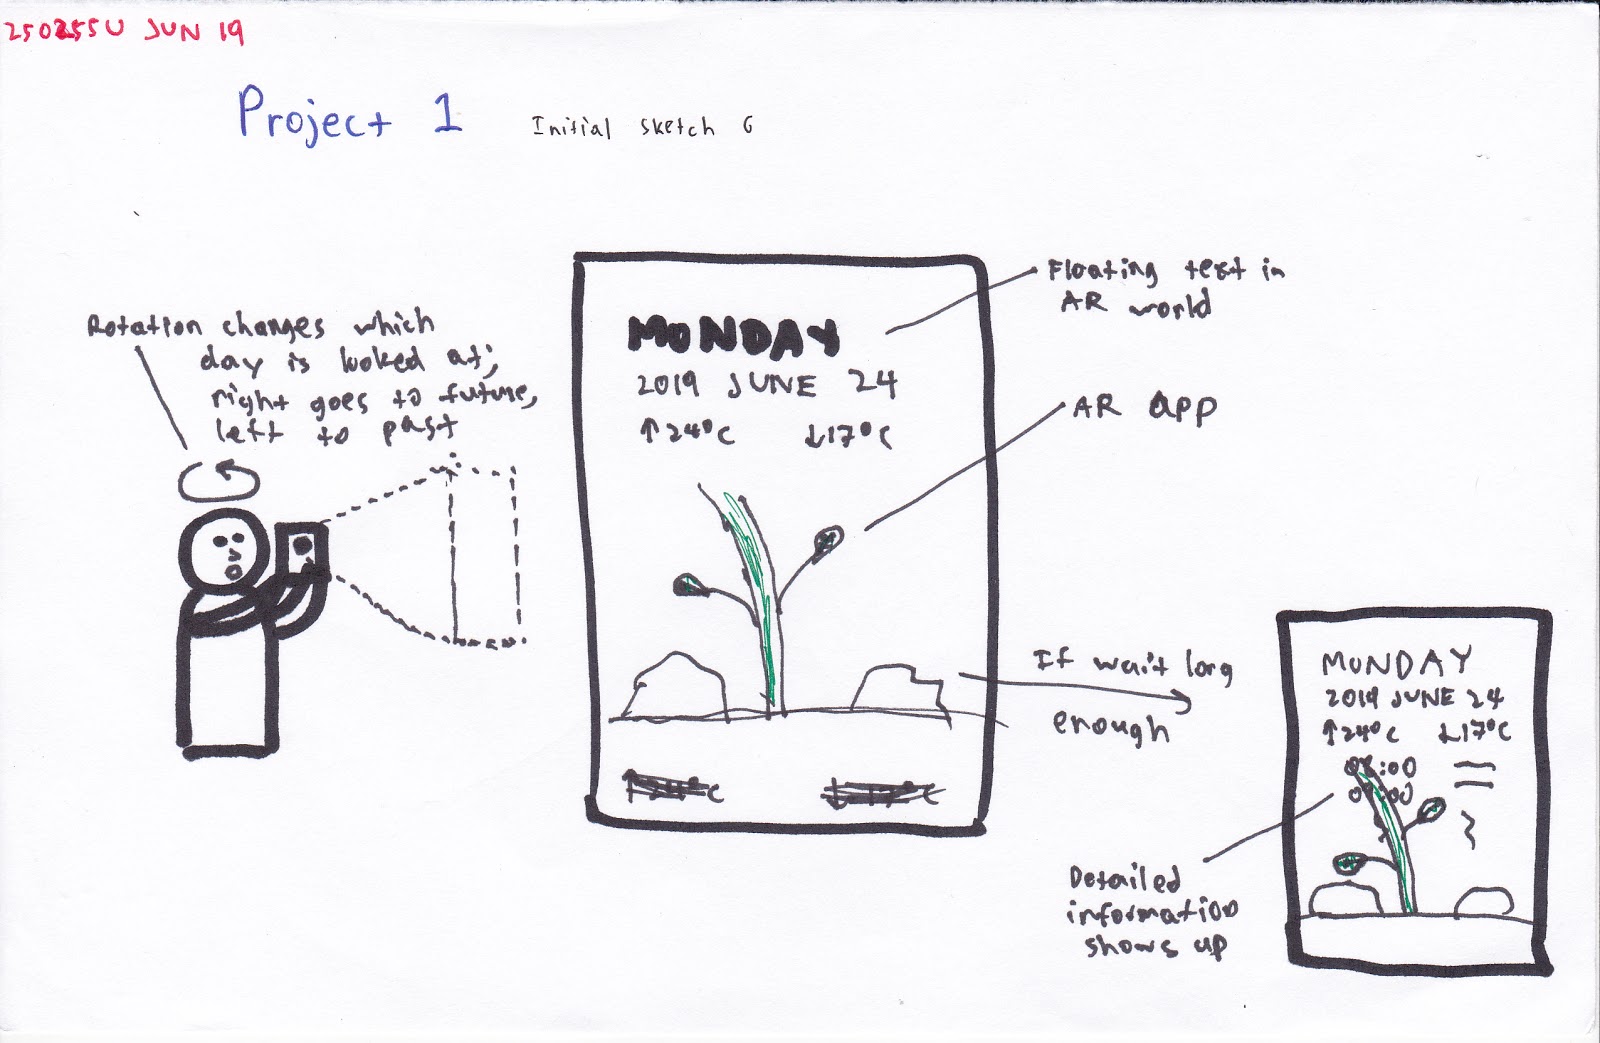 250255U JUN 19
Project 1
Initial sketch 6
Rotation changes which
day is looked at;
right goes to future,
left to past
MONDAY
2019 JUNE 24
↑24°C ↓17°C
↑24°C ↓17°C
Floating text in
AR world
AR app
If wait long
enough
MONDAY
2019 JUNE 24
↑24°C ↓17°C
08:00
09:00
Detailed
information
shows up